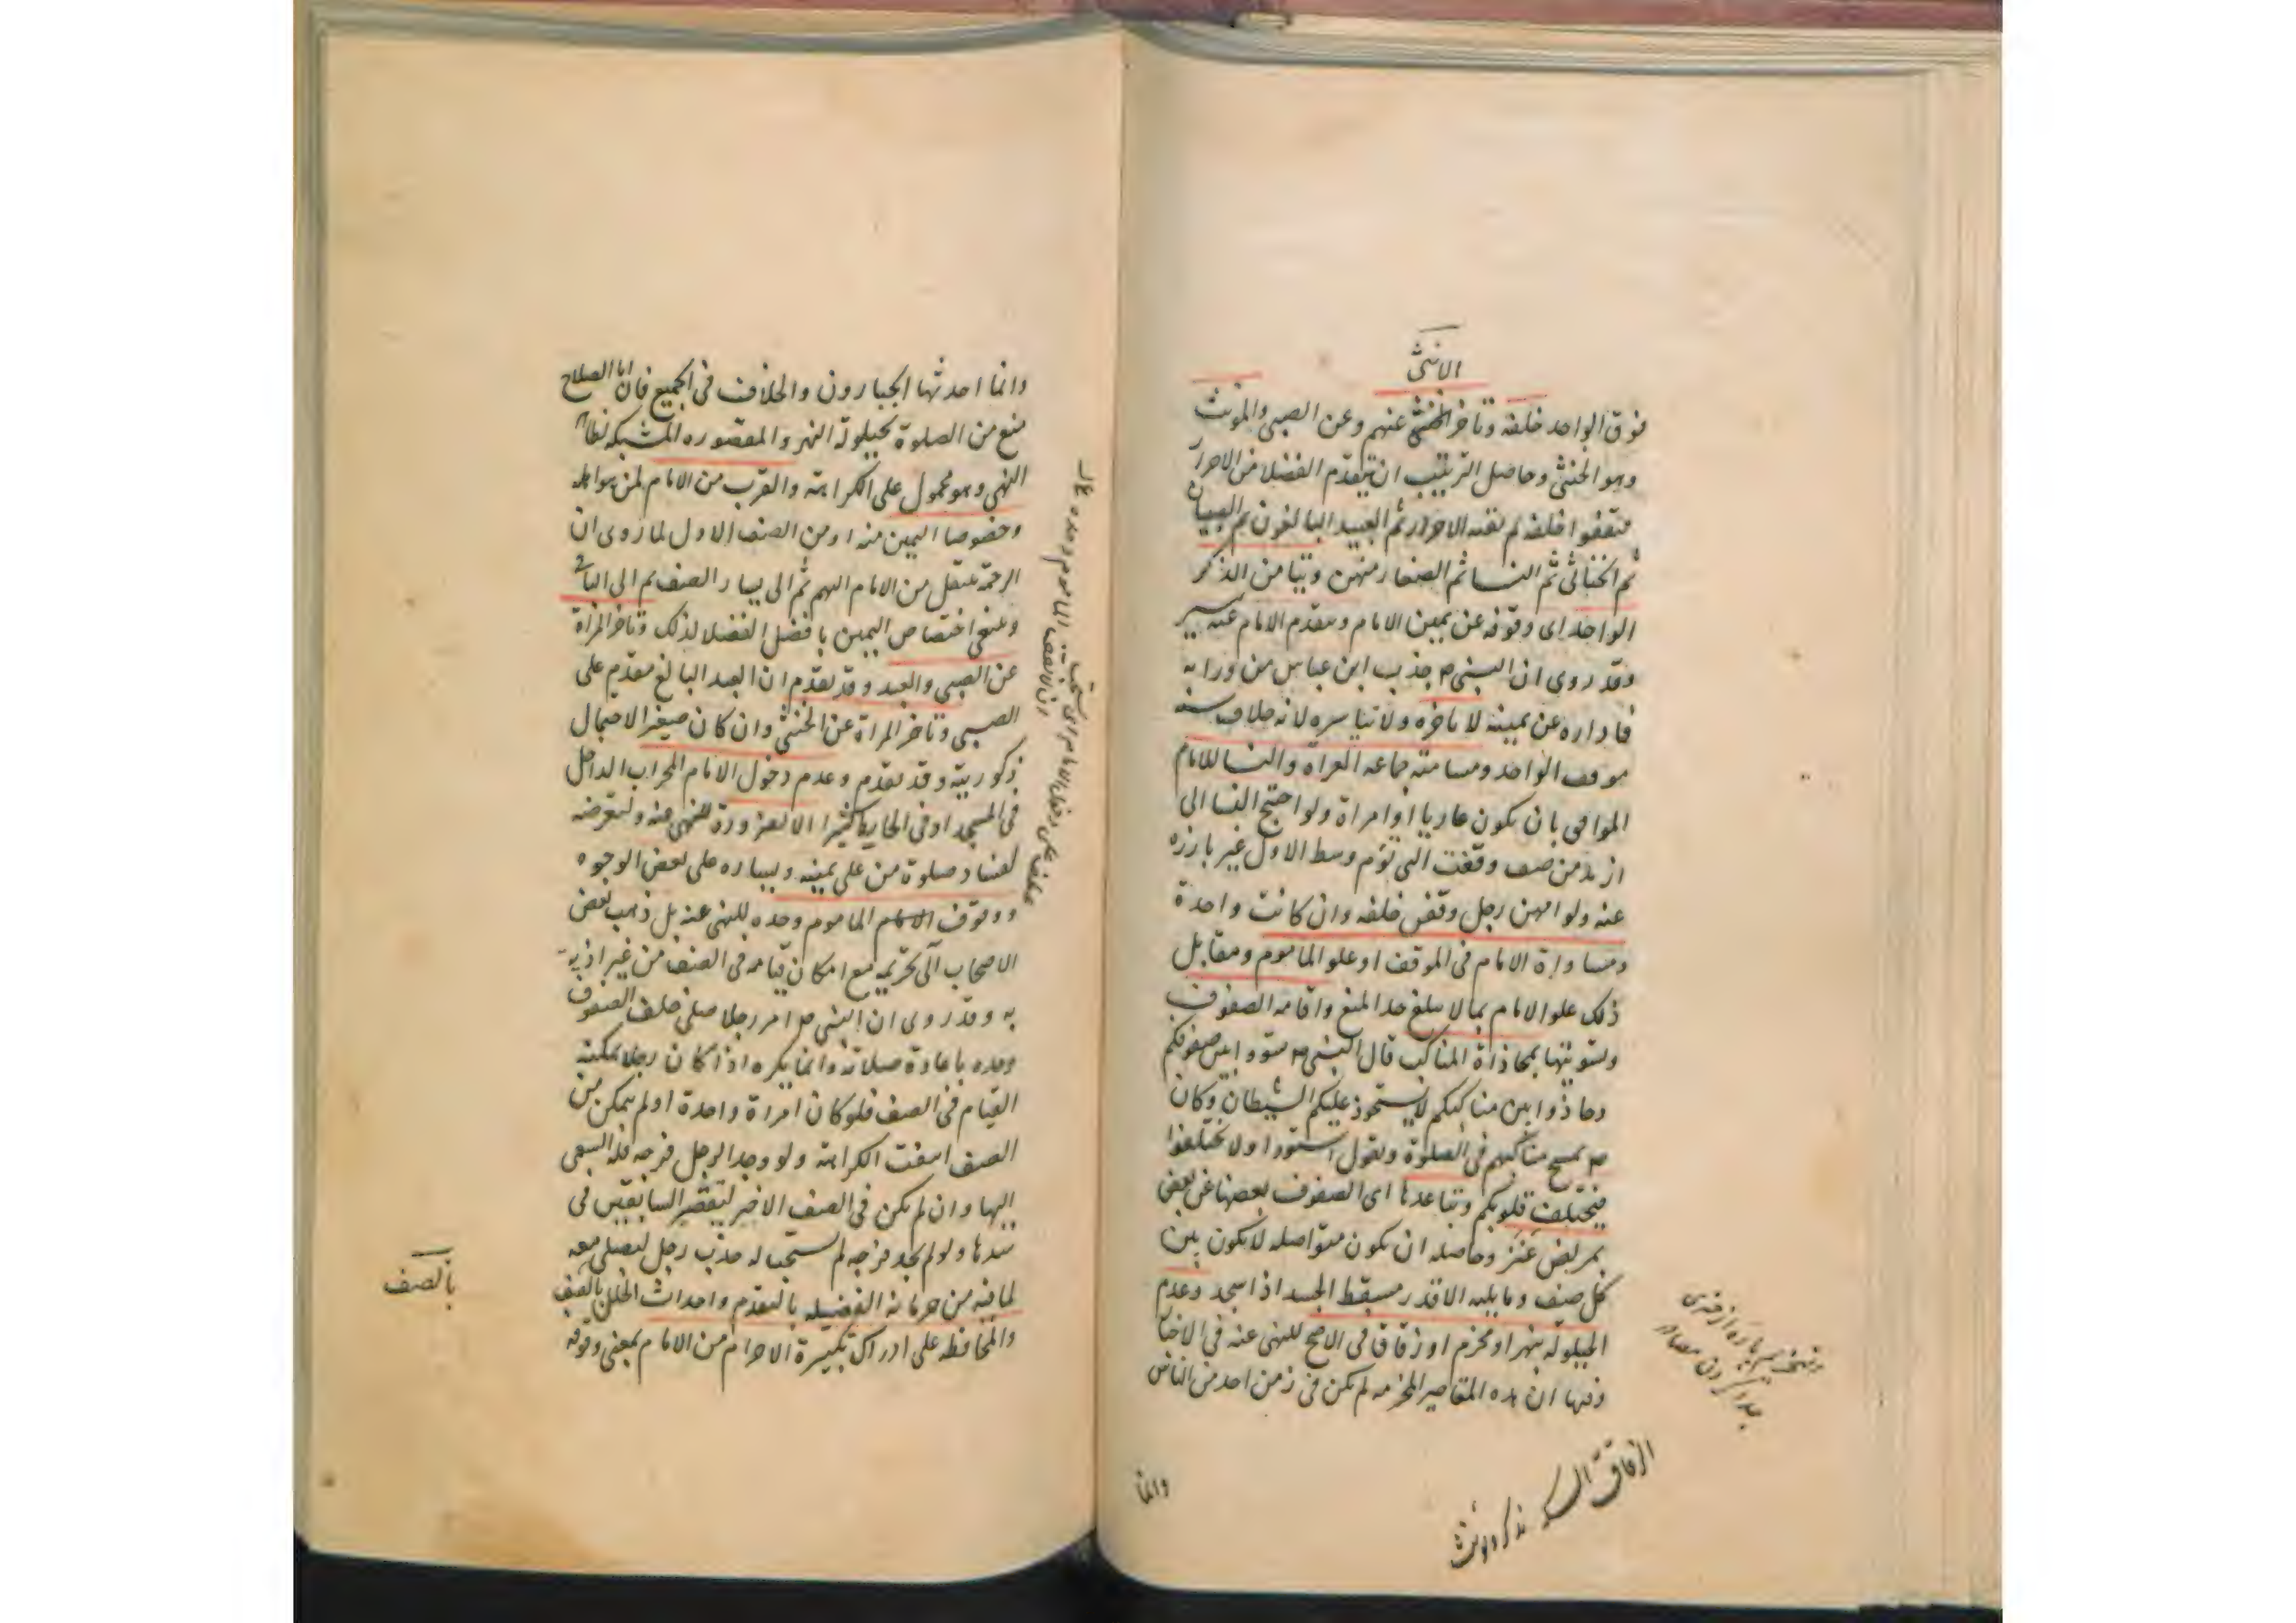 الانثى
فوق الواحد خلفه وتاخر الخنثى عنهم وعن الصبى والمونث
وهو الخنثى وحاصل الترتيب ان يتقدم الفضلا من الاحرار
فيقفوا خلفه ثم بقية الاحرار ثم العبيد البالغون ثم الصبيان
ثم الخناثى ثم النسا ثم الصغار منهن وتيامن الذكر
الواحد اى وقوفه عن يمين الامام وتقدم الامام عنه بيسير
وقد روى ان النبى ص جذب ابن عباس من ورائه
فاداره عن يمينه لا تاخره ولا تياسره لانه خلاف سنة
موقف الواحد ومسامتة جماعه العراة والنسا للامام
الموافى بان يكون عاريا او امراة ولو احتج النسا الى
ازيد من صف وقفت التى تؤم وسط الاول غير بارزه
عنه ولو امهن رجل وقفن خلفه وان كانت واحدة
ومساواة الامام فى الموقف او علو الماموم ومقابل
ذلك علو الامام بما لا يبلغ حد المنع واقامه الصفوف
وتسويتها بمحاذاة المناكب قال النبى ص سووا بين صفوفكم
وحاذوا بين مناكبكم لا يستحوذ عليكم الشيطان وكان
ص يمسح مناكبهم فى الصلوة ويقول استووا ولا تختلفوا
فيختلف قلوبكم وتباعدها اى الصفوف بعضها عن بعض
بمربض عنز وحاصله ان يكون متواصله لا يكون بين
كل صف وما يليه الا قدر مسقط الجسد اذا سجد وعدم
الحيلولة بنهر او مخرم او زقاق فى الاصح للنهى عنه فى الاخبار
وفيها ان هذه المقاصير المخرمه لم يكن فى زمن احد من الناس
الزقاق السكه يذكر ويونث
وانما
وانما احدثها الجبارون والخلاف فى الجميع فان ابا الصلاح
منع من الصلوة بحيلولة النهر والمقصوره المشبكه لظاهر
النهى وهو محمول على الكراهة والقرب من الامام لمن هو اهله
وخصوصا اليمين منه او من الصف الاول لما روى ان
الرحمة تنتقل من الامام اليهم ثم الى يسار الصف ثم الى الباقى
وينبغى اختصاص اليمين بافضل الفضلا لذلك وتاخر المراة
عن الصبى والعبد وقد تقدم ان العبد البالغ مقدم على
الصبى وتاخر المراة عن الخنثى وان كان صغيرا لاحتمال
ذكوريته وقد تقدم وعدم دخول الامام المحراب الداخل
فى المسجد او فى الحايط كثيرا الا لضرورة للنهى عنه ولتعرضه
لفساد صلوة من على يمينه ويساره على بعض الوجوه
ووقوف الماموم وحده للنهى عنه بل ذهب بعض
الاصحاب الى تحريمه مع امكان قيامه فى الصف من غير اذية
به وقد روى ان النبى ص امر رجلا صلى خلف الصفوف
وحده باعادة صلاته وانما يكره اذا كان رجلا يمكنه
القيام فى الصف فلو كان امراة واحدة او لم يمكن من
الصف انتفت الكراهة ولو وجد الرجل فرجه فله السعى
اليها وان لم يكن فى الصف الاخير لتقصير السابقين فى
سدها ولو لم يجد فرجه لم يستحب له جذب رجل ليصلى معه
لما فيه من حرمانه الفضيله بالتقدم واحداث الخلل بالصف
والمحافظه على ادراك تكبيرة الاحرام من الامام بمعنى وقوفه
بالصف